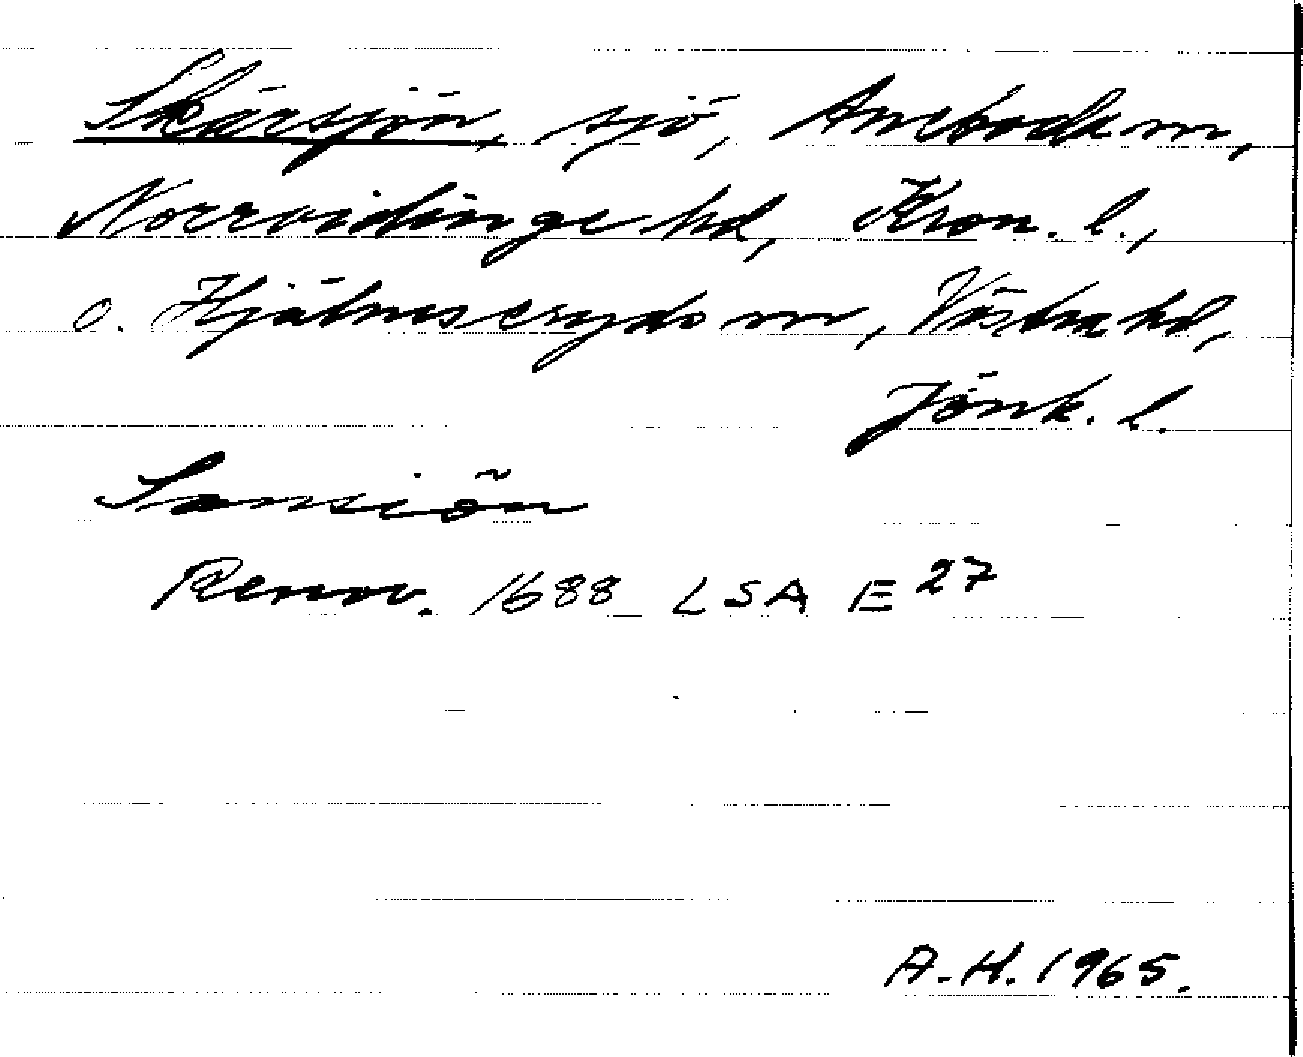 Skärsjön, sjö, Aneboda sn,
Norrvidinge hd, Kron. l.,
o. Hjälmseryds sn, Västra hd,
Jönk. l.
Sansiön
Renov. 1688 LSA E 27
A.H. 1965.